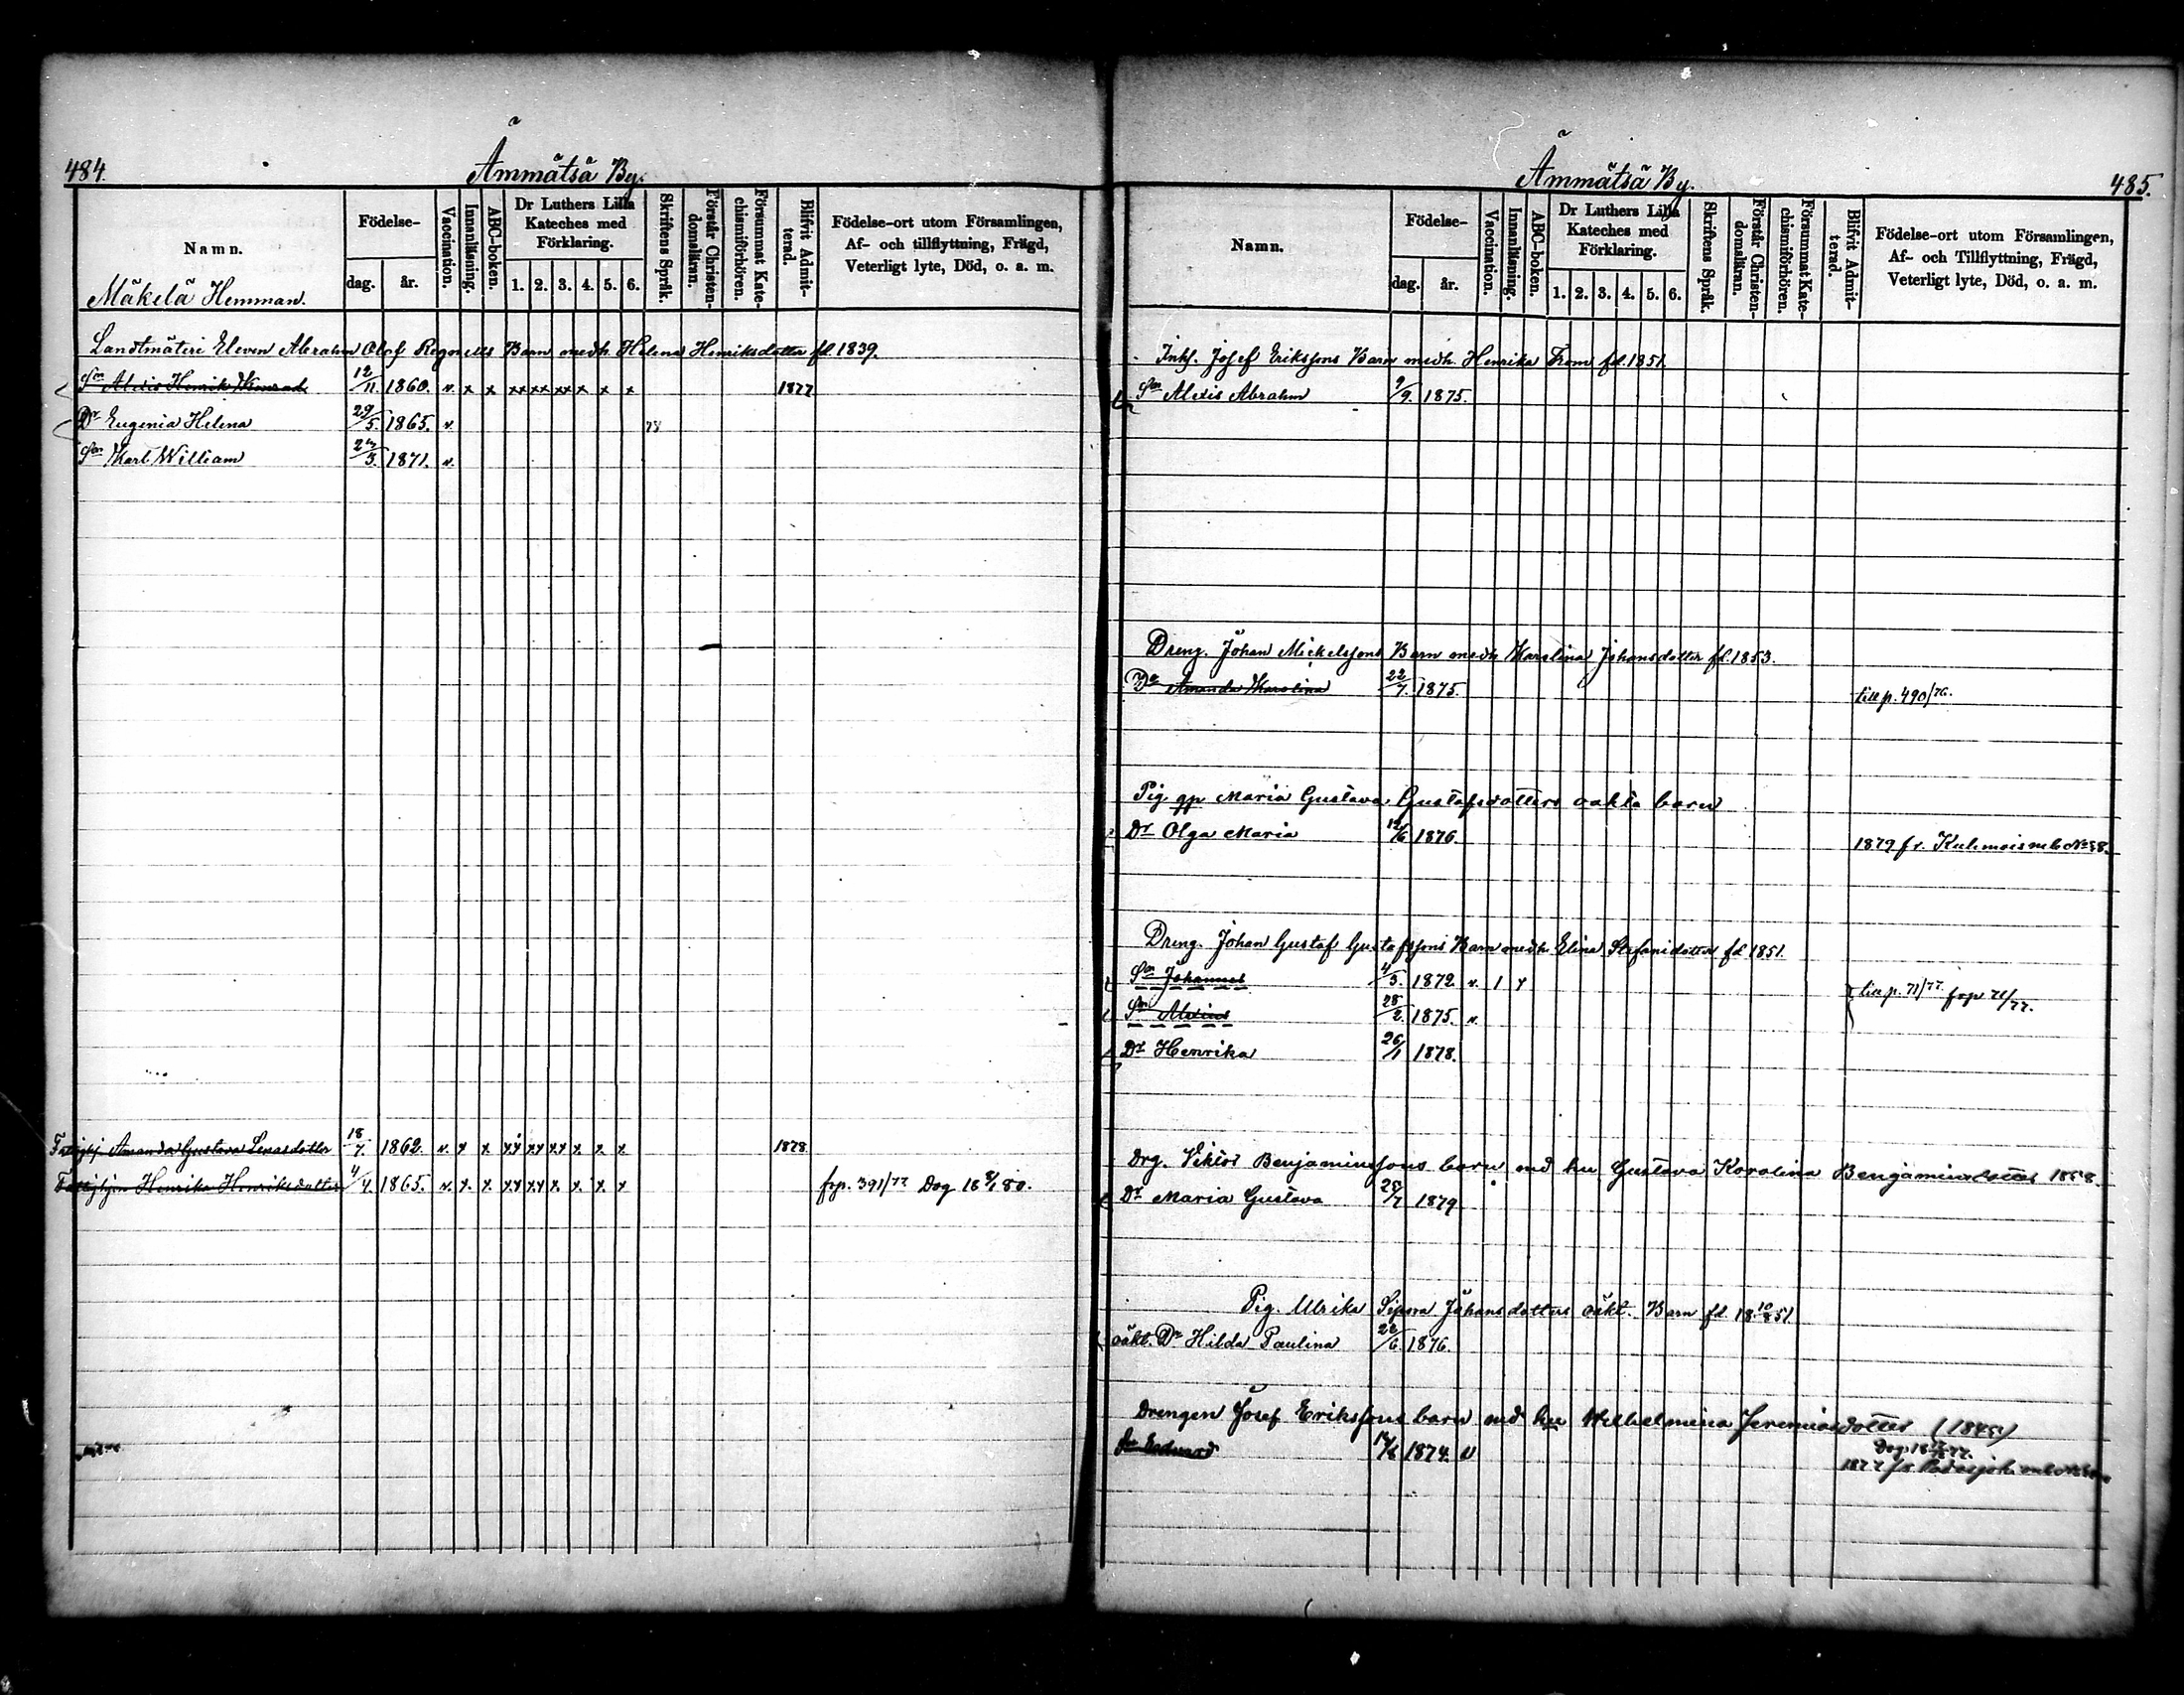 484.
Ämmätsä By.
Namn.
Födelse-
dag.
år.
Vaccination.
Innanläsning.
ABC-boken.
Dr Luthers Lilla
Kateches med
Förklaring.
1. 2. 3. 4. 5. 6.
Skriftens Språk.
Förstår Christen-
domsläran.
Försummat Kate-
chismiförhören.
Blifvit Admit-
terad.
Födelse-ort utom Församlingen,
Af- och tillflyttning, Frägd,
Veterligt lyte, Död, o. a. m.
Mäkelä Hemman.
Landtmäteri Eleven Abraham Olof Regnells Barn medh. Helena Henriksdotter fd 1839.
Sn Alexis Henrik Konrad 12/11. 1860. v. x x xx xx xx x x x 1877
Dr Eugenia Helena 29/5. 1865. v. 78
Sn Karl William 1871. v.
Amanda Gustava Lenasdotter 18/7. 1862. v. x x xx xx xx x x x 1878
Fattighjon Henrika Henriksdotter 4/4. 1865. v. x. x xx xx x x. x x frp. 391/77 Dog 18 80.
Ämmätsä By.
485.
Namn.
Födelse-
dag.
år.
Vaccination.
Innanläsning.
ABC-boken.
Dr Luthers Lilla
Kateches med
Förklaring.
1. 2. 3. 4. 5. 6.
Skriftens Språk.
Förstår Christen-
domsläran.
Försummat Kate-
chismiförhören.
Blifvit Admit-
terad.
Födelse-ort utom Församlingen,
Af- och Tillflyttning, Frägd,
Veterligt lyte, Död, o. a. m.
Inh. Josef Erikssons Barn medh. Henrika From fd. 1851.
Sn Alexis Abraham 9/9. 1875.
Dreng. Johan Mickelssons Barn medh Karolina Johansdotter fd. 1853.
Dr Amanda Karolina 22/7. 1875. till p. 490/76.
Pig Maria Gustava Gustafsdotters oäkta barn
Dr Olga Maria 12/6 1876. 1879 fr. Kuhmois mb No 38.
Dreng. Johan Gustaf Gustafssons Barn medh. Elina Stefansdotter fd 1851.
Sn Johannes 4/3. 1872 v. 1 x till p. 71/77 frp 71/77.
Sn Alexius 28/2. 1875. v.
Dr Henrika 26/1 1878.
Drg. Viktor Benjaminssons barn md hu Gustava Karolina Benjaminsdotter 1858.
Dr Maria Gustava 28/7 1879
Pig. Ulrika Sipora Johansdotters oäkt. Barn fd. 18 10/8 51
oäkt. Dr Hilda Paulina 22/6. 1876.
Drengen Josef Erikssons barn md hu Wilhelmina Jeremiasdotter (1845)
Sn Edward 1874. v Dog 18 77.
1877 fr. Padasjoki